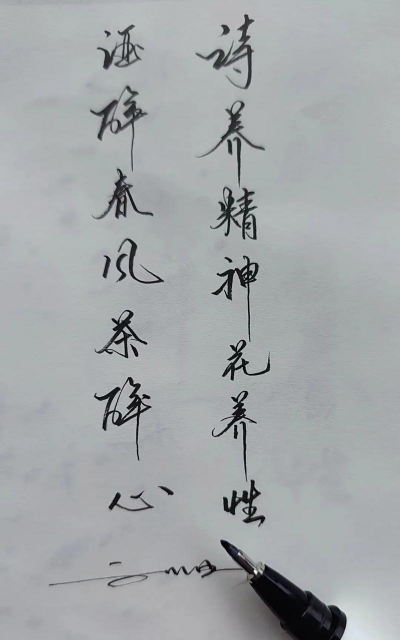 诗养精神花养性
酒醉春风茶醉心